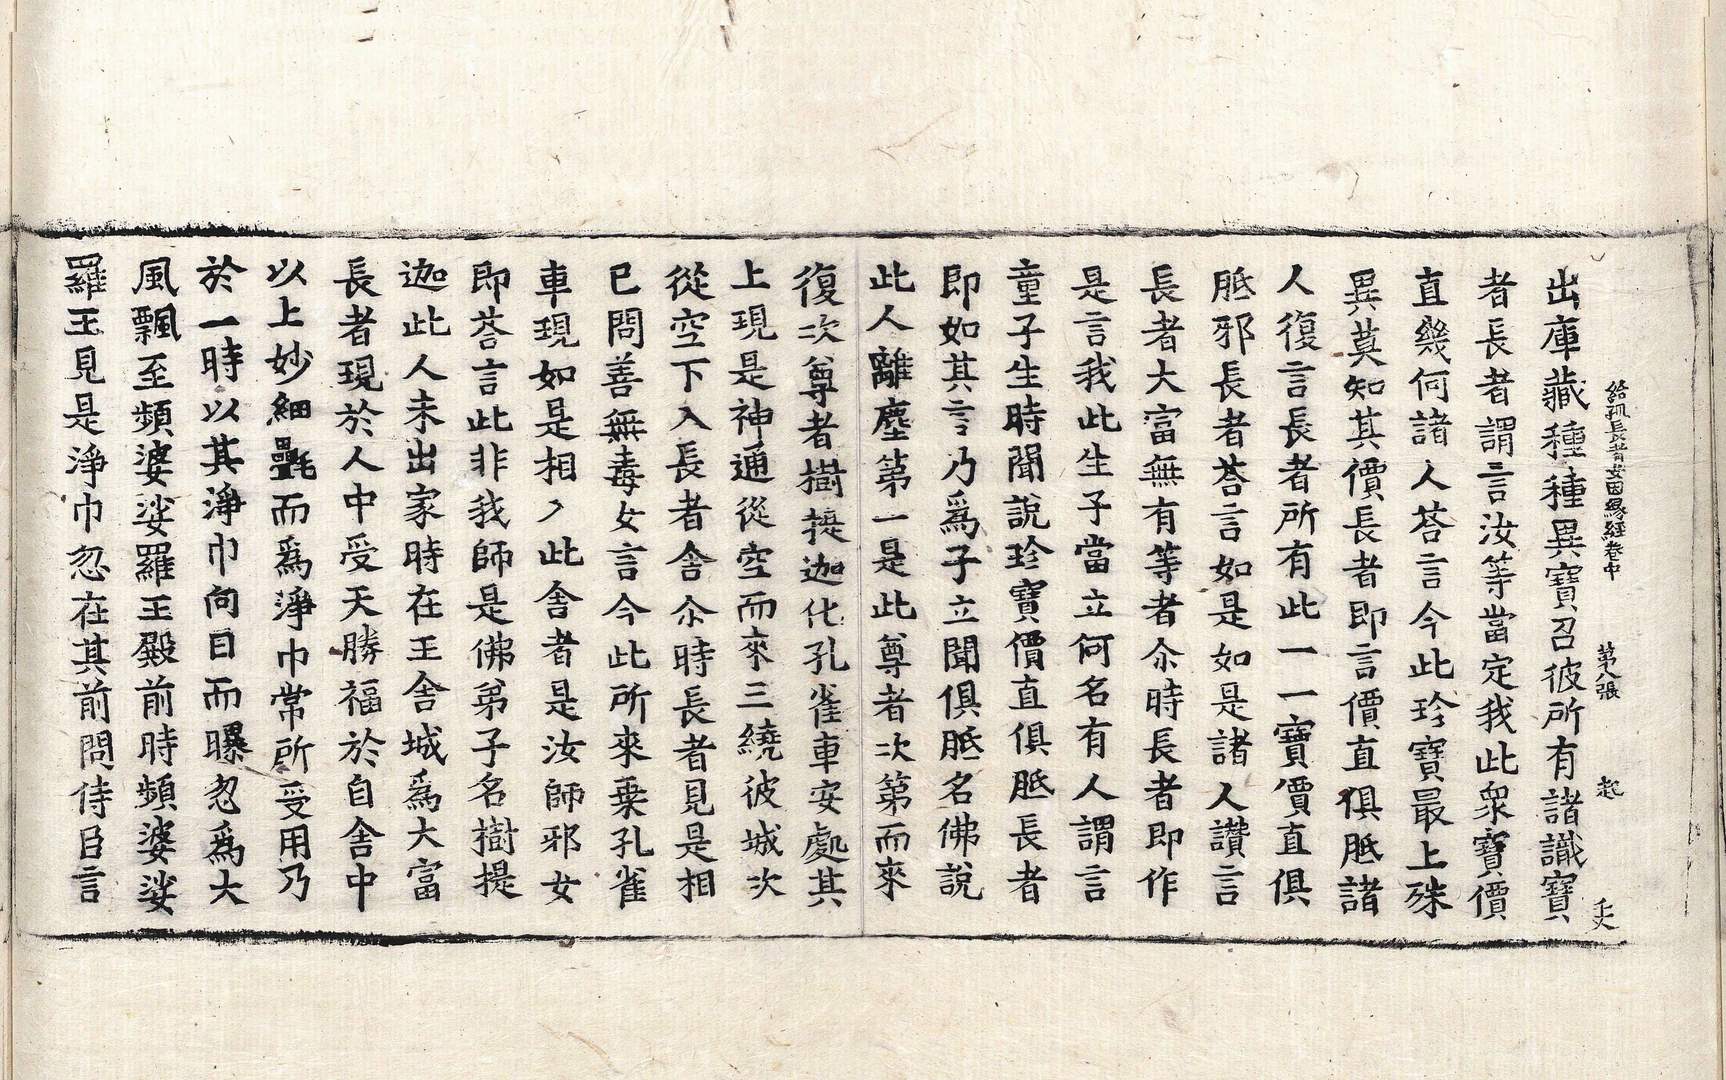 給孤長者女因緣經卷中 第八張 起
出庫藏種種異寶召彼所有諸識寶
者長者謂言汝等當定我此衆寶價
直幾何諸人荅言今此珍寶最上殊
異莫知其價長者即言價直俱胝諸
人復言長者所有此一一寶價直俱
胝邪長者荅言如是如是諸人讚言
長者大富無有等者尒時長者即作
是言我此生子當立何名有人謂言
童子生時聞說珍寶價直俱胝長者
即如其言乃爲子立聞俱胝名佛說
此人離塵第一是此尊者次第而來
復次尊者樹提迦化孔雀車安處其
上現是神通從空而來三繞彼城次
從空下入長者舍尒時長者見是相
已問善無毒女言今此所來乗孔雀
車現如是相入此舍者是汝師邪女
即荅言此非我師是佛弟子名樹提
迦此人未出家時在王舍城爲大富
長者現於人中受天勝福於自舍中
以上妙細㲲而爲淨巾常所受用乃
於一時以其淨巾向日而曝忽爲大
風飄至頻婆娑羅王殿前時頻婆娑
羅王見是淨巾忽在其前問侍臣言